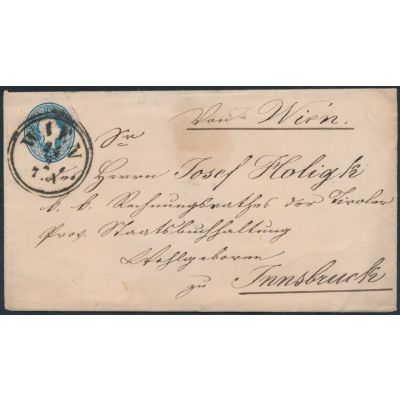 Von Wien.
WIEN
Sr
des Herrn Josef Holigk
k. k. Rechnungsrathes der Tiroler
Prov. Staatsbuchhaltung
Wohlgeboren
zu Innsbruck